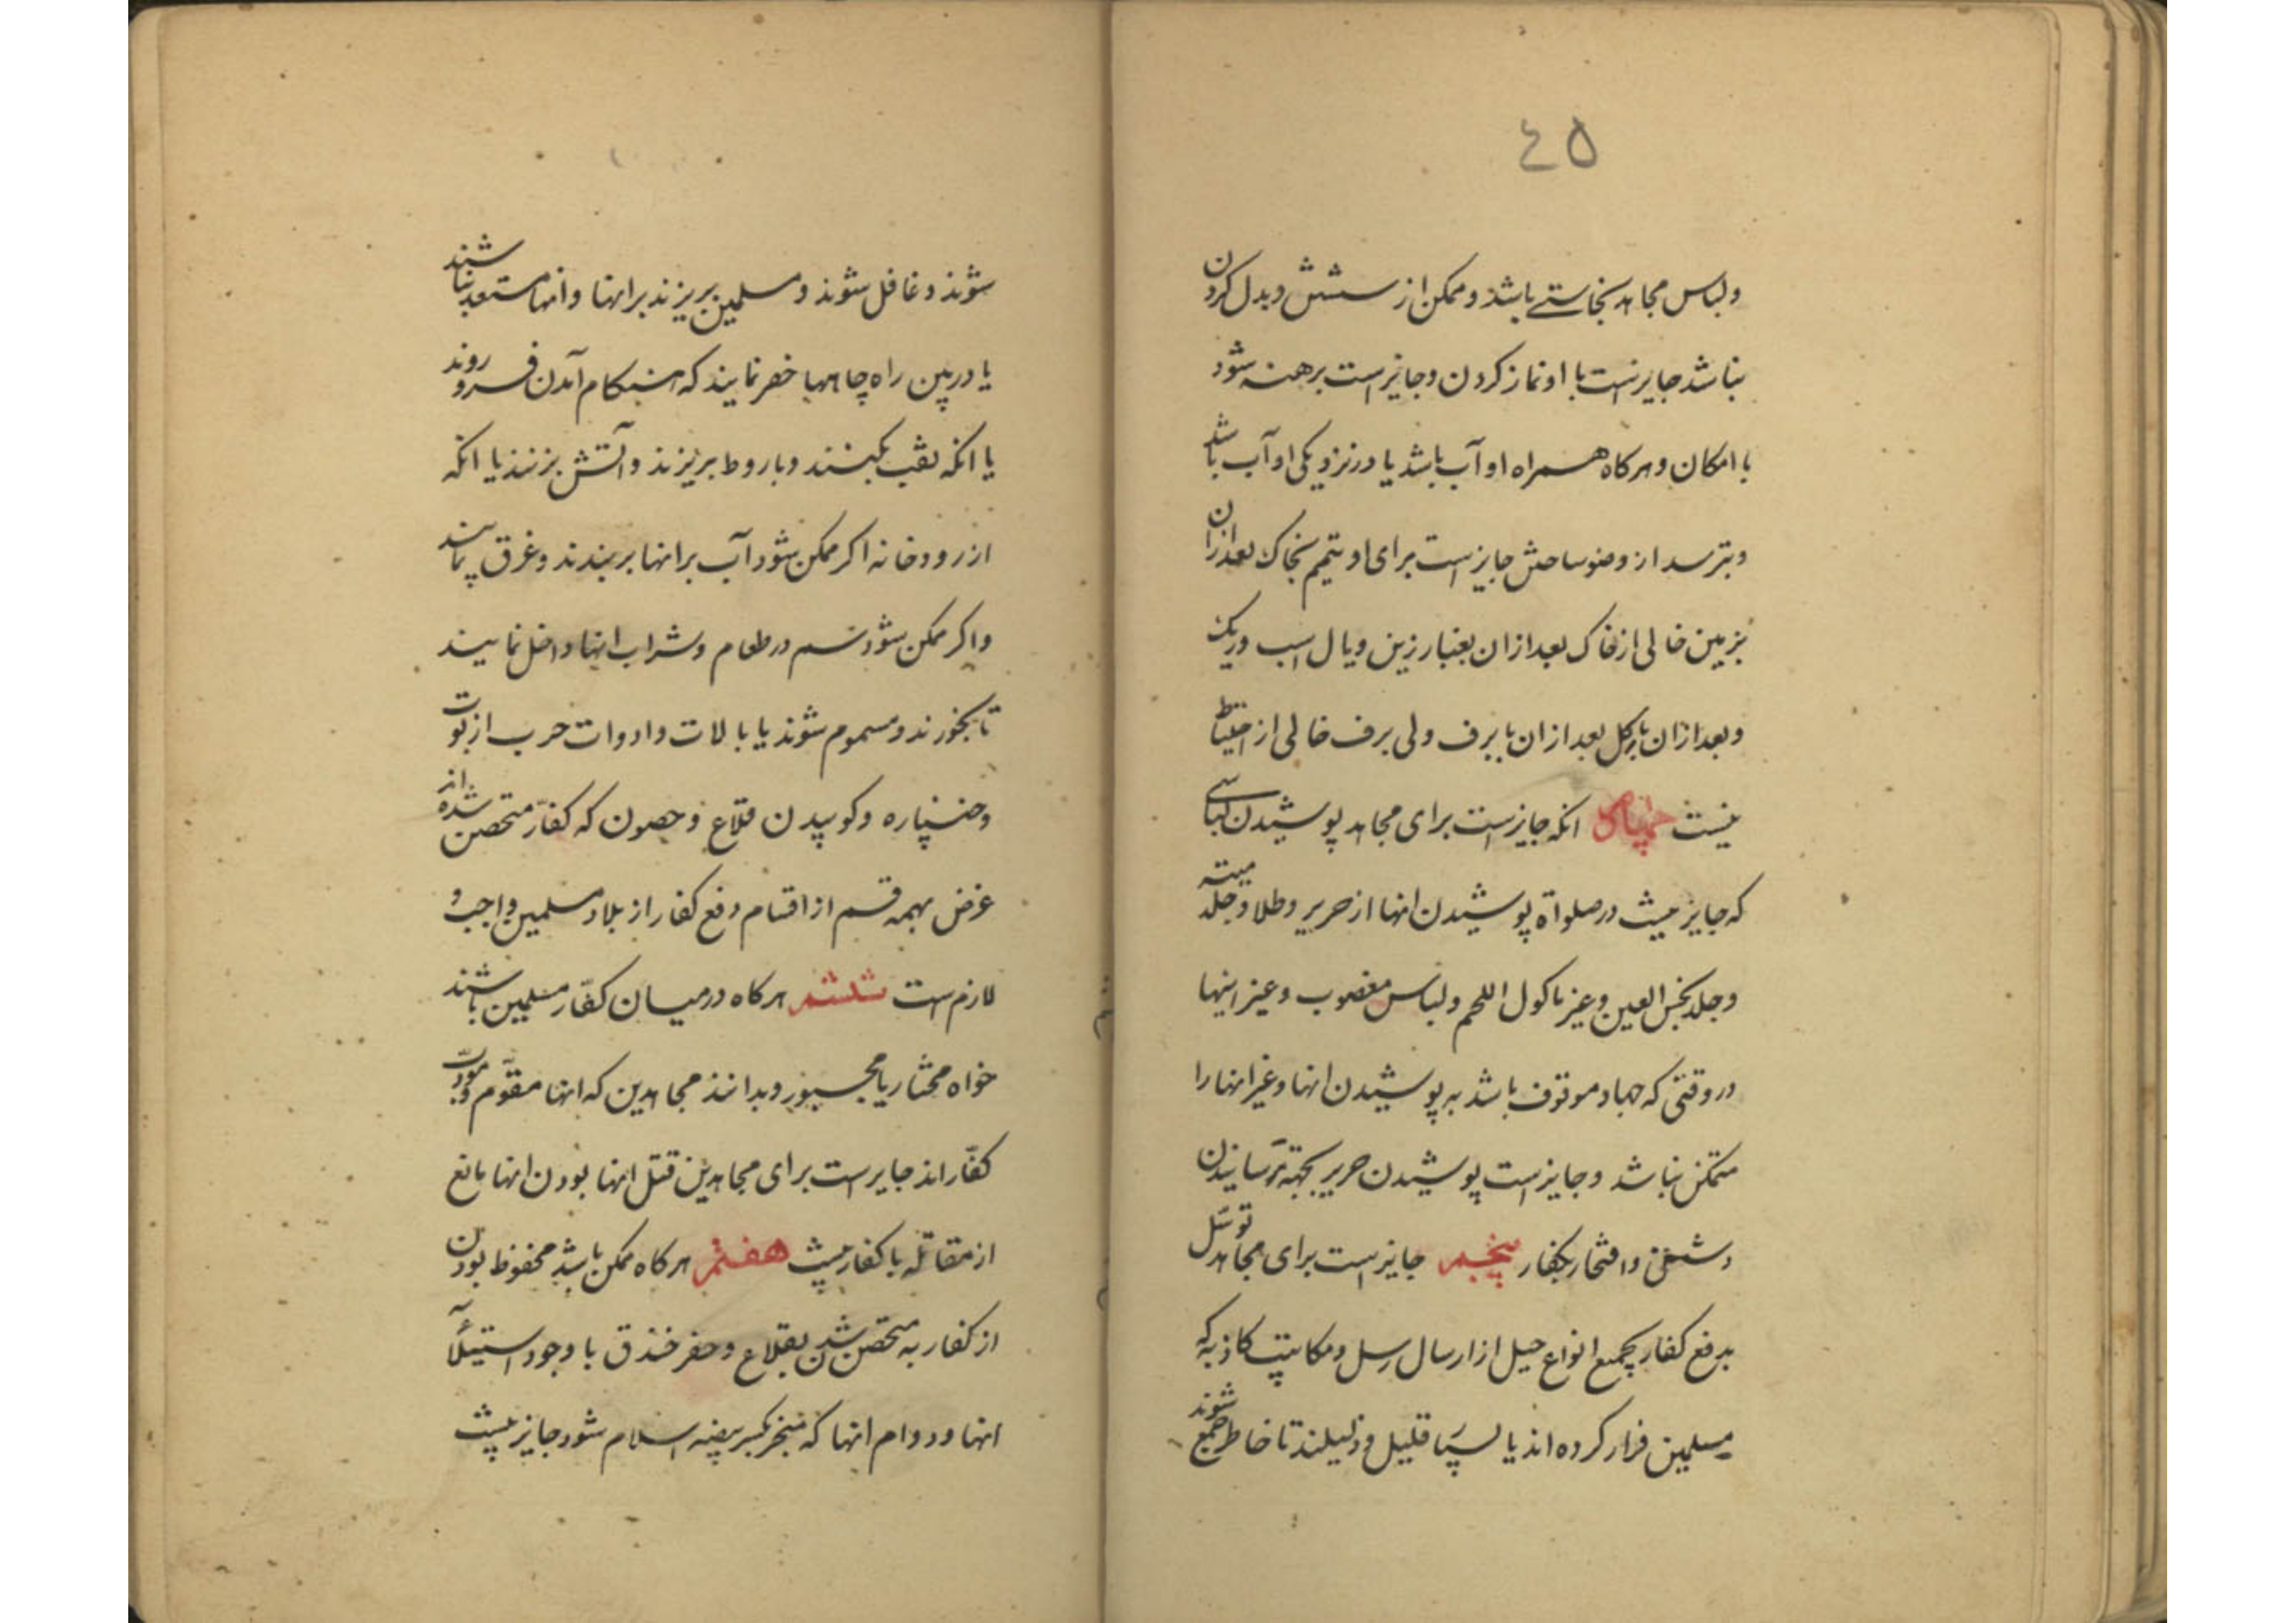 ٤٥
ولباس مجاهد نجاستے باشد وممکن از شستش وبدل کردن
نباشد جایز است با او نماز کردن وجایز است برهنه شود
با امکان وهرکاه همراه او آب باشد یا در نزدیکی او آب باشد
وبترسد از وضو ساختن جایز است برای او تیمم بخاک بعد ازان
بزمین خالی از خاک بعد ازان بغبار زین ویال اسب وریک
وبعد ازان با کل بعد ازان با برف ولی برف خالی از احتیاط
نیست چهارم انکه جایز است برای مجاهد پوشیدن لباسی
که جایز نیست در صلواة پوشیدن انها از حریر وطلا وجلد میته
وجلد نجس العین وغیر ماکول اللحم ولباس مغصوب وغیر اینها
در وقتی که جهاد موقوف باشد به پوشیدن انها وغیر انها را
متمکن نباشد وجایز است پوشیدن حریر بجهة ترسانیدن
دشمن وافتخار بکفار پنجم جایز است برای مجاهد توسل
بدفع کفار بجمیع انواع حیل از ارسال رسل ومکاتیب کاذبه که
مسلمین فرار کرده اند یا بسیا قلیل وذلیلند تا خاطر جمع شوند
شوند وغافل شوند ومسلمین بریزند بر انها وانها مستعد نباشند
یا در بین راه چاهها حفر نمایند که هنکام آمدن فرو روند
یا انکه نقب بکنند وباروط بریزند وآتش بزنند یا انکه
از رودخانه اکر ممکن شود آب بر انها بر بندند وغرق نمایند
واکر ممکن شود سم در طعام وشراب انها داخل نمایند
تا بخورند ومسموم شوند یا بالات وادوات حرب از توب
وخنپاره وکوبیدن قلاع وحصون که کفّار متحصن شده اند
غرض بهمه قسم از اقسام دفع کفار از بلاد مسلمین واجب و
لازم است ششم هرکاه در میان کفّار مسلمین باشند
خواه مختار یا مجبور وبدانند مجاهدین که انها مقوّم ومورّب
کفّار اند جایز است برای مجاهدین قتل انها بودن انها مانع
از مقاتله با کفار نیست هفتم هرکاه ممکن باشد محفوظ بودن
از کفار به متحصن شدن بقلاع وحفر خندق با وجود استیلآ
انها ودوام انها که منجر بکسر بیضه اسلام شود جایز نیست